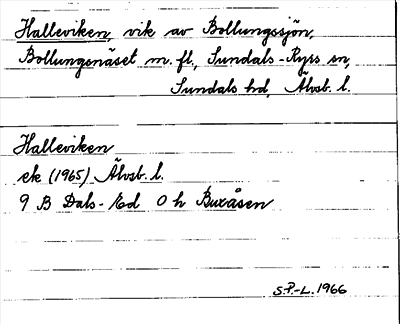 Halleviken, vik av Bollungssjön,
Bollungsnäset m. fl., Sundals-Ryrs sn,
Sundals hd, Älvsb. l.
Halleviken
ek (1965) Älvsb. l.
9 B Dals-Ed 0 h Buxåsen
S.P.-L. 1966